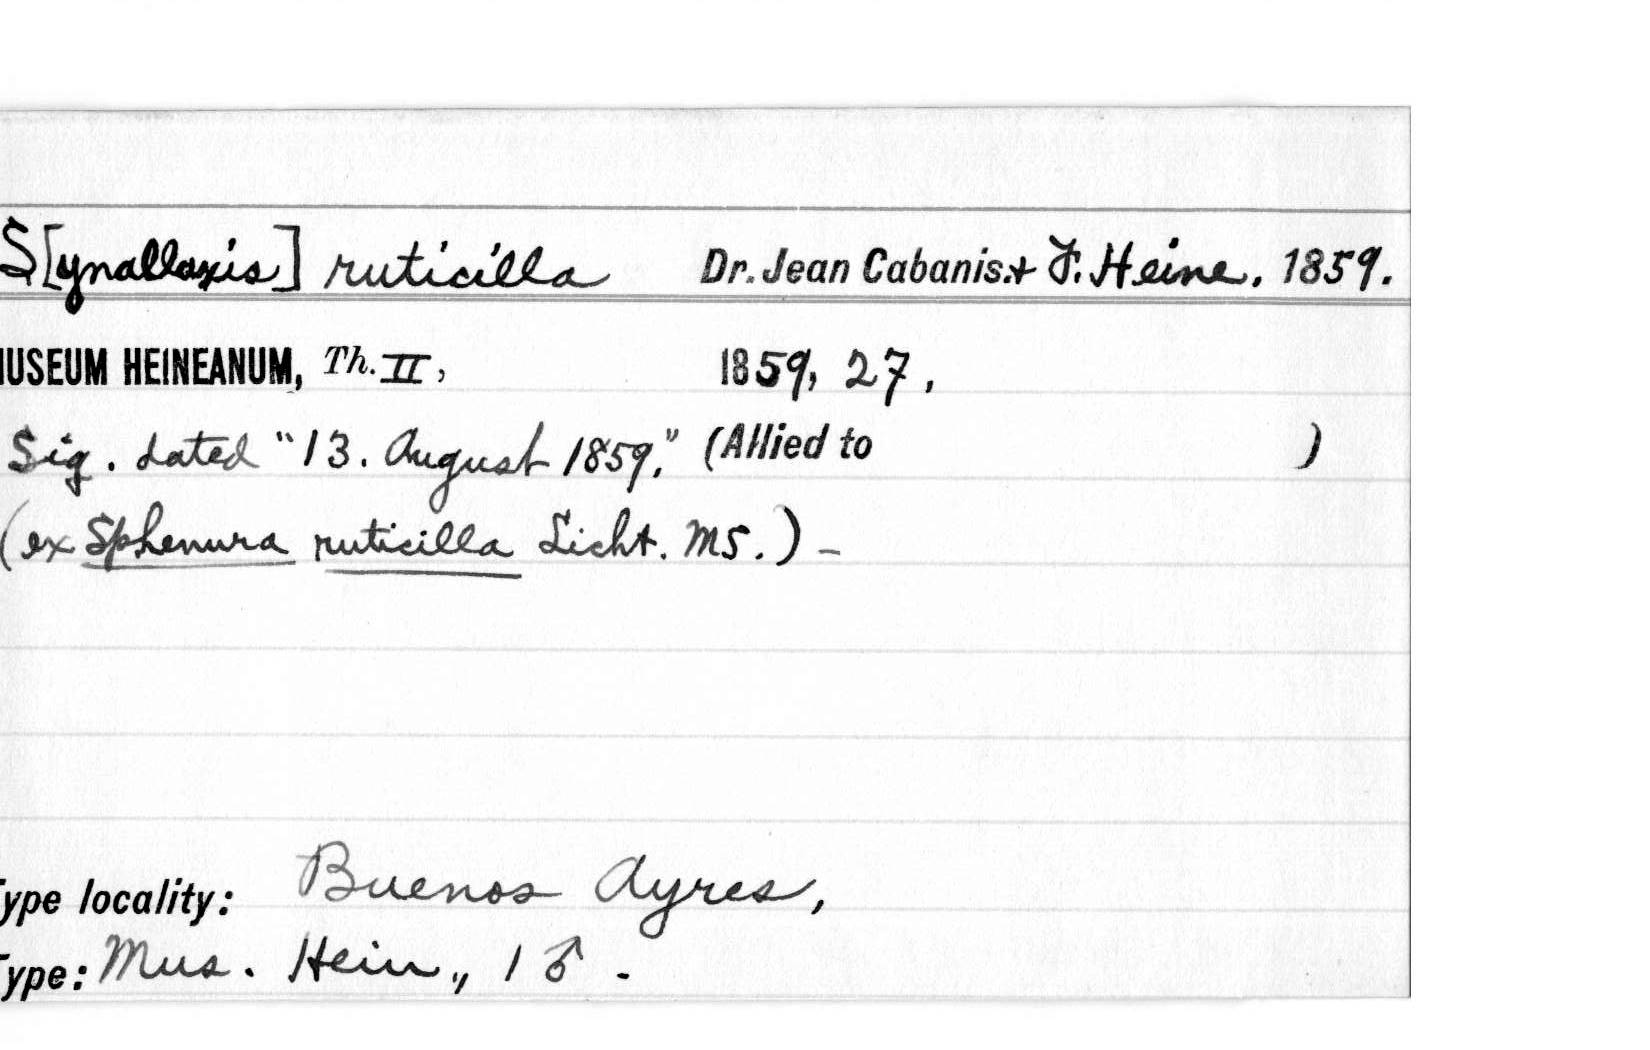 S[ynallaxis] ruticilla Dr. Jean Cabanis. + F. Heine, 1859.
MUSEUM HEINEANUM, Th. II, 1859, 27,
Sig. dated "13. August 1859," (Allied to )
(ex Sphenura ruticilla Licht. MS.) -
Type locality: Buenos Ayres,
Type: Mus. Hein., 1 ♂ .